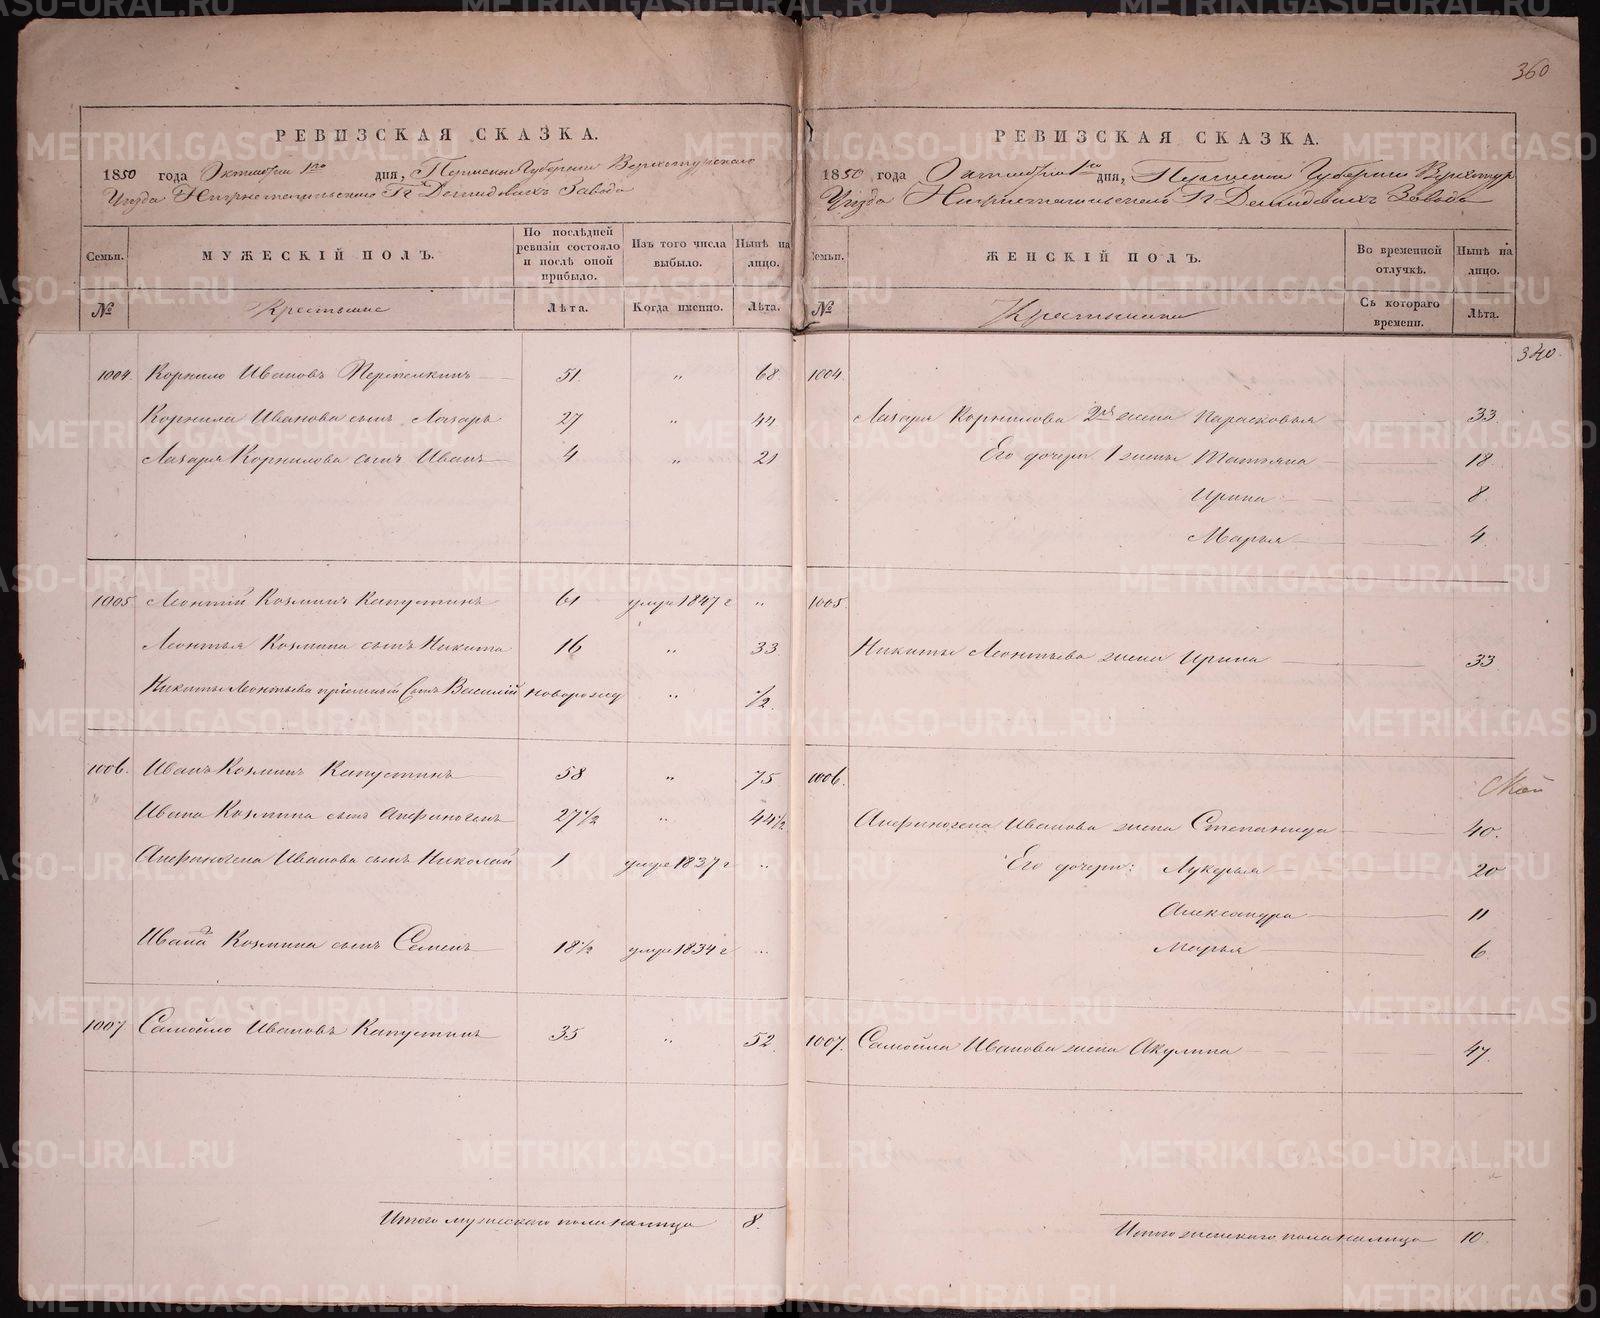 360
РЕВИЗСКАЯ СКАЗКА.
1850 года Октября 1го дня, Пермской Губернии Верхотурскаго
Уѣзда Нижнетагильскаго Гг Демидовыхъ Завода
Семьи.
МУЖЕСКІЙ ПОЛЪ.
По послѣдней ревизіи состояло и послѣ оной прибыло.
Изъ того числа выбыло.
Нынѣ на лицо.
№
Крестьяне
Лѣта.
Когда именно.
Лѣта.
1004. Корнило Ивановъ 51. " 68.
Корнила Иванова сынъ Лазарь 27 " 44
Лазаря Корнилова сынъ Иванъ 4 " 21
1005 Леонтій Козминъ Капустинъ 61 умре 1847 г "
Леонтья Козмина сынъ Никита 16 " 33
Никиты Леонтьева пріемный сынъ Василій новорожд " 1/2.
1006. Иванъ Козминъ Капустинъ 58 " 75
Ивана Козмина сынъ Анфиногенъ 27 1/2 " 44 1/2
Анфиногена Иванова сынъ Николай 1 умре 1837 г "
Ивана Козмина сынъ Семенъ 18 1/2 умре 1834 г "
1007 Самойло Ивановъ Капустинъ 35 " 52.
Итого мужескаго пола налицо 8.
РЕВИЗСКАЯ СКАЗКА.
1850 года Октября 1го дня, Пермской Губерніи Верхотур
Уѣзда Нижнетагильскаго Гг Демидовыхъ Завода
Семьи.
ЖЕНСКІЙ ПОЛЪ.
Во временной отлучкѣ.
Нынѣ на лицо.
№
Крестьянки
Съ котораго времени.
Лѣта.
340.
1004.
Лазаря Корнилова 2я жена Парасковья 33.
Его дочери 1 жены Татьяна 18
Ирина 8.
Марья 4
1005.
Никиты Леонтьева жена Ирина 33
1006.
Анфиногена Иванова жена Степанида 40.
Его дочери: Лукерья 20
Александра 11
Марья 6
1007. Самойла Иванова жена Акулина 47.
Итого женскаго пола налицо 10.
METRIKI.GASO-URAL.RU